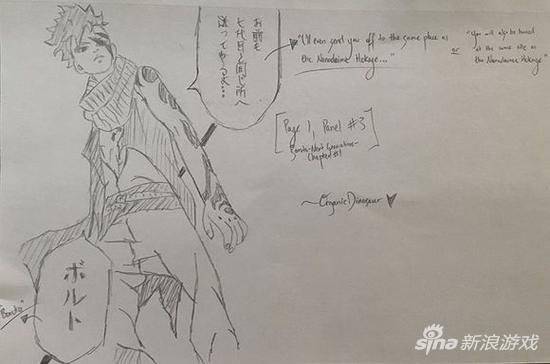 お前も
七代目と同じ所へ
送ってやるよ…
"I'll even send you off to the same place as
the Nanadaime Hokage..."
or
"You will also be buried
at the same site as
the Nanadaime Hokage"
[Page 1, Panel #3]
Boruto-Next Generations-
Chapter #1
~OrganicDinosaur
ボルト
"Boruto"
sina新浪游戏